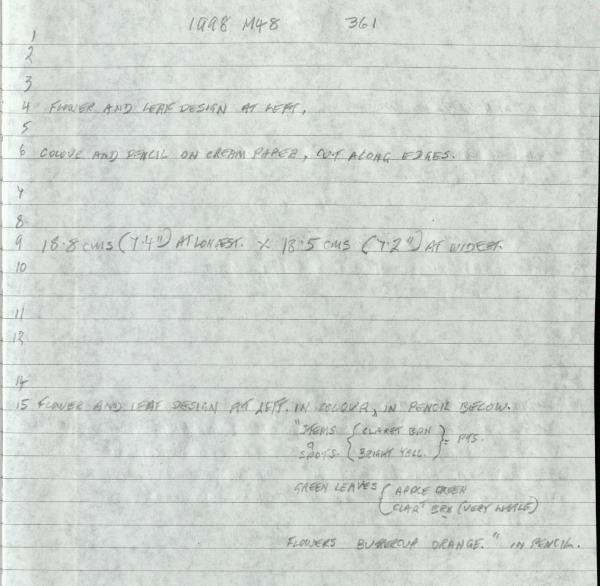 1998 M48 361
1
2
3
4 FLOWER AND LEAF DESIGN AT LEFT,
5
6 COLOUR AND PENCIL ON CREAM PAPER, CUT ALONG EDGES.
7
8
9 18.8 CMS (7.4") AT LONGEST. X 18.5 CMS (7.2") AT WIDEST.
10
11
12
14
15 FLOWER AND LEAF DESIGN AT LEFT. IN COLOUR, IN PENCIL BELOW.
"STEMS { CLARET BRN } = PTS.
&
SPOTS. { BRIGHT YELL.
GREEN LEAVES { APPLE GREEN
CLAR^T BRN (VERY LITTLE)
FLOWERS BUTTERCUP ORANGE." IN PENCIL.